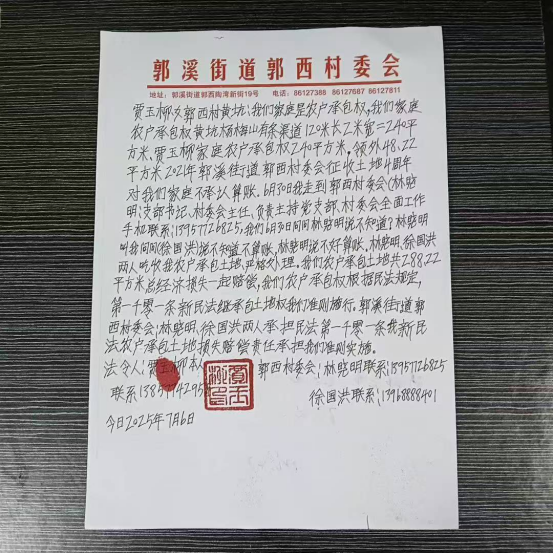 郭溪街道郭西村委会
地址：郭溪街道郭西陶湾新街19号 电话：86127388 86127687 86127811
贾玉柳女郭西村黄坑：我们家庭是农户承包权，我们家庭
农户承包权黄坑杨梅山有条渠道120米长乙米宽＝240平
方米，贾玉柳家庭农户承包权240平方米，领外48,22
平方米2021年郭溪街道郭西村委会征收土地4周年
对我们家庭不承认算账。6月30日我走到郭西村委会（林晓
明：支部书记、村委会主任、负责主持党支部、村委会全面工作
手机联系：13957726825，我们6月30日问问林晓明说不知道？林晓明
叫我问问（徐国洪）说不知道不算账，林晓明说不好算账，林晓明、徐国洪
两人吃收我农户承包土地，严格处理，我们农户承包土地共288,22
平方米总经济损失一起赔偿，我们农户承包权根据民法规定，
第一千零一条新民法继承包土地权我们准则施行。郭溪街道郭
西村委会：林晓明、徐国洪两人承担民法第一千零一条我新民
法农户承包土地损失赔偿责任承担我们准则实施。
法令人：贾玉柳本 郭西村委会：林晓明联系：13957726825
联系：138 徐国洪联系：13968888401
今日2025年7月6日